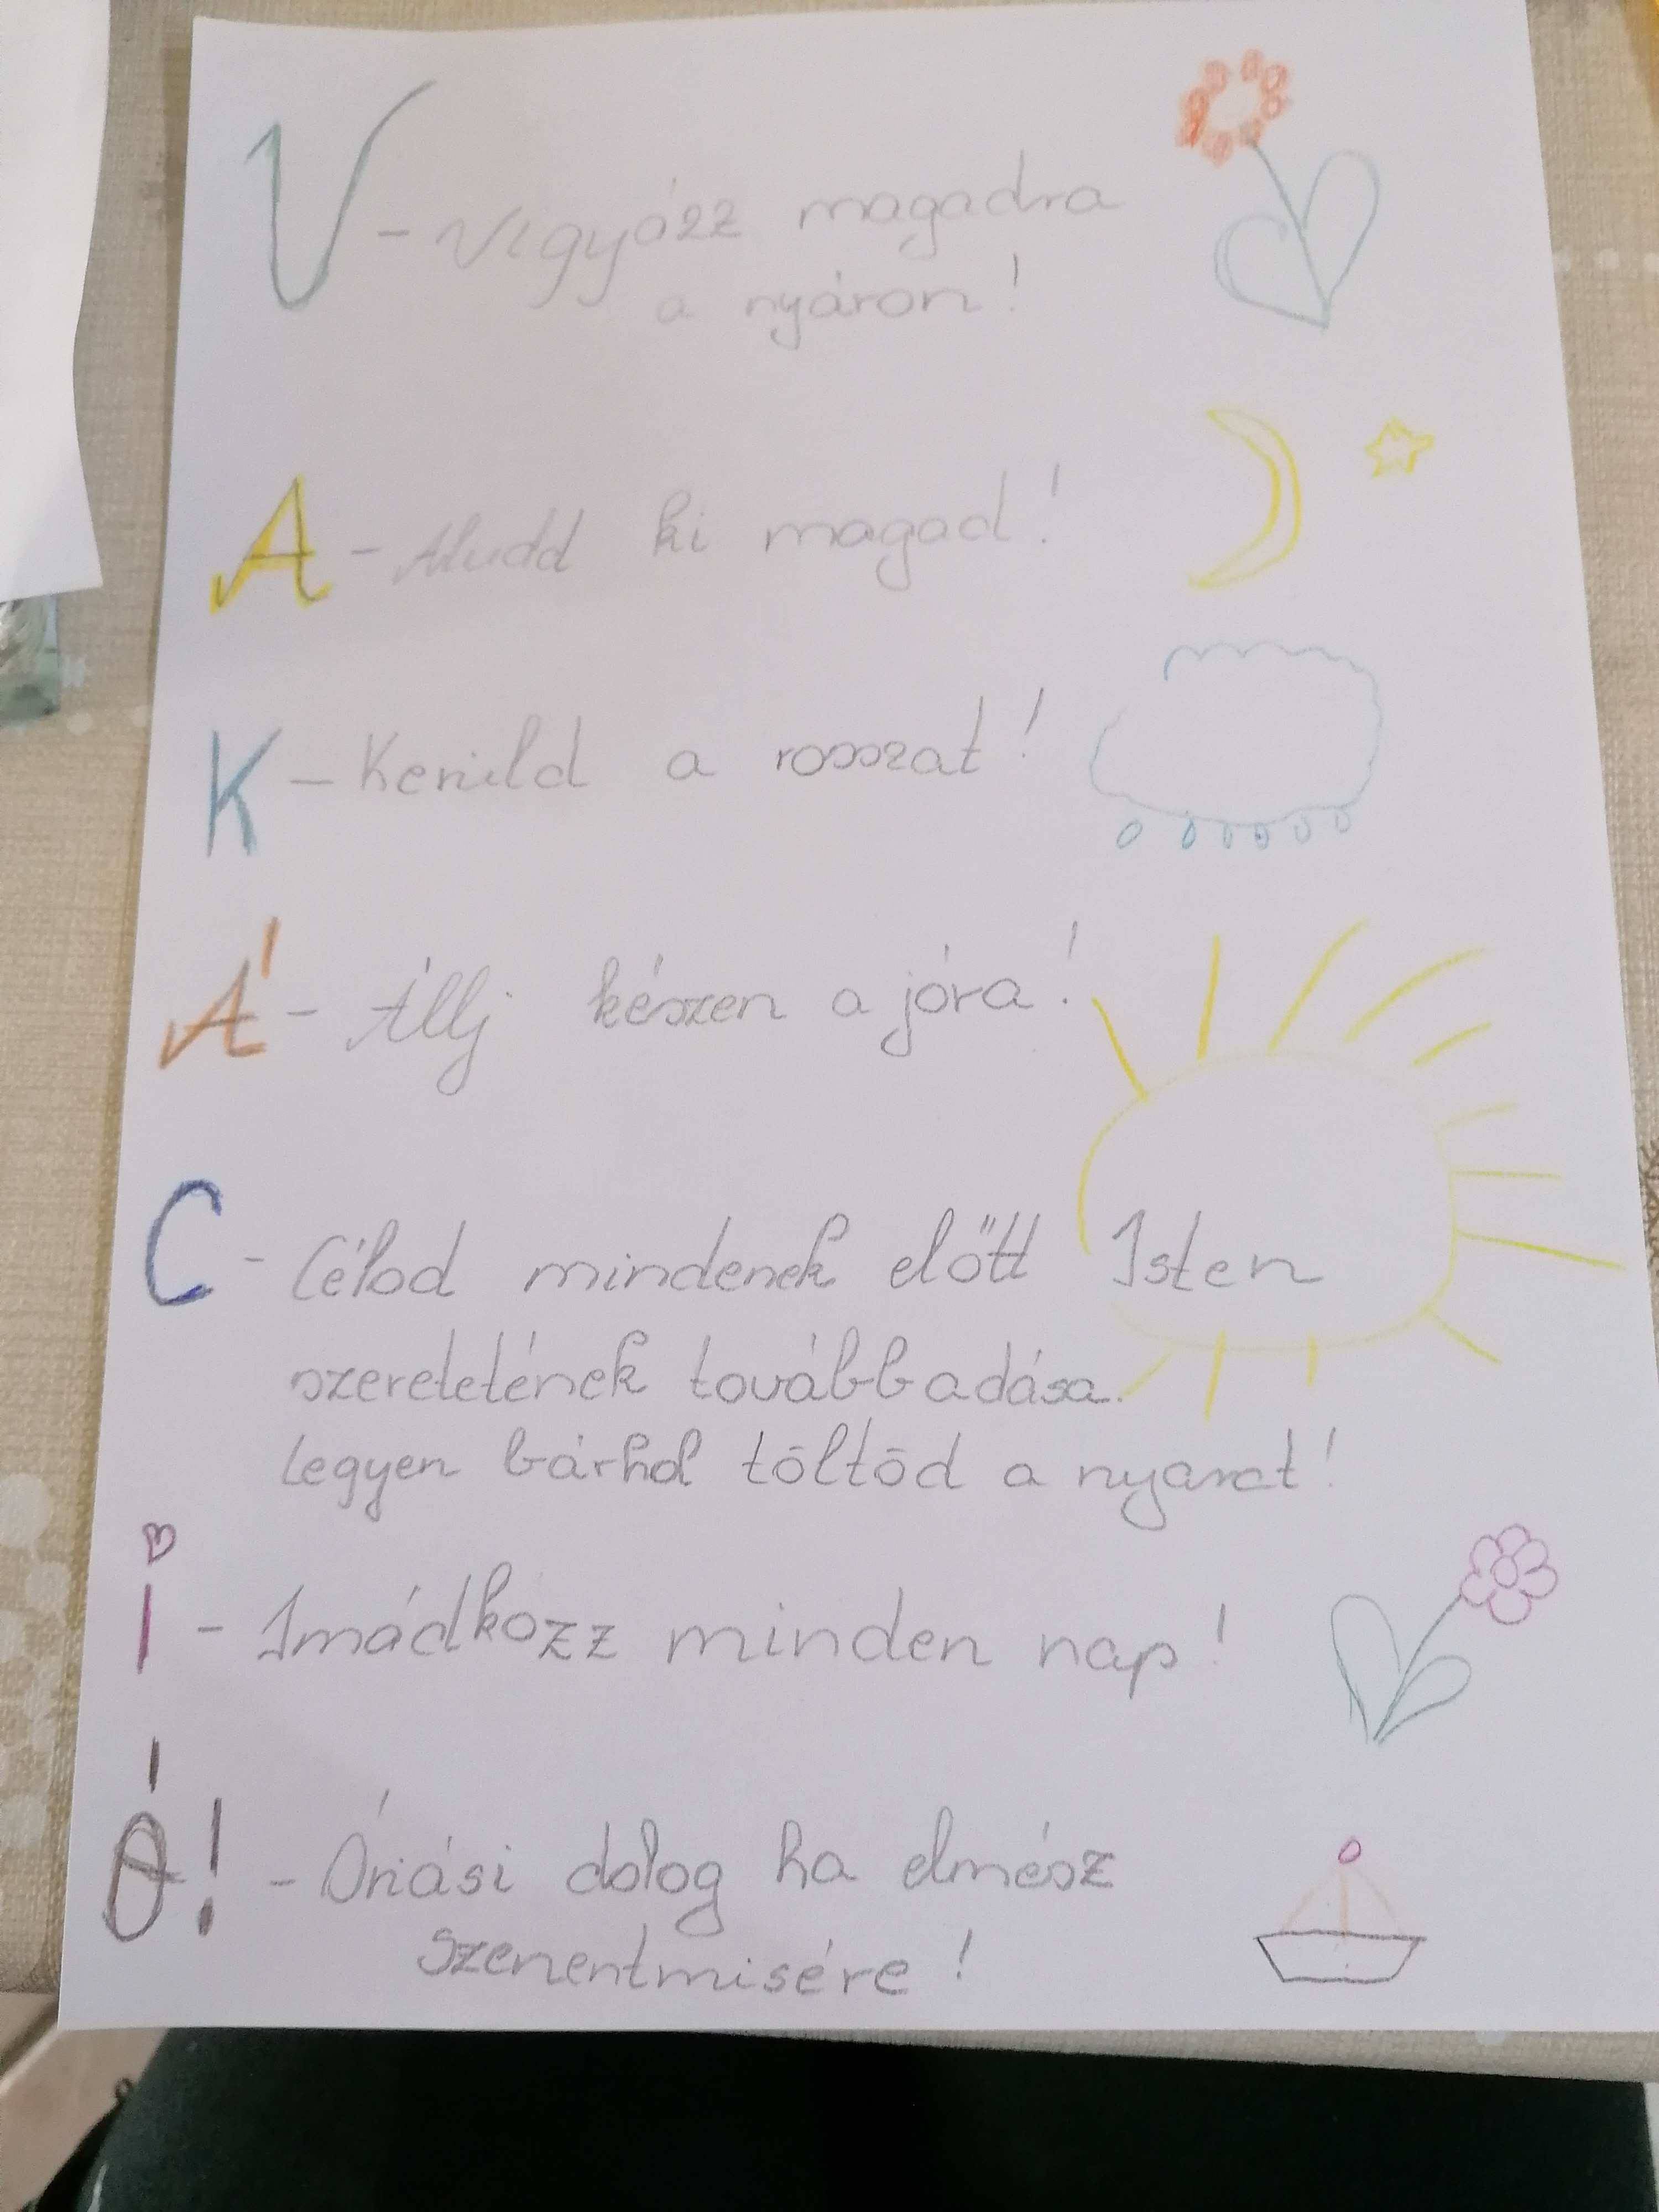 V - Vigyázz magadra
a nyáron!
A - Aludd ki magad!
K - Kerüld a rosszat!
Á - Állj készen a jóra!
C - Célod mindenek előtt Isten
szeretetének továbbadása.
Legyen bárhol töltöd a nyarat!
i - Imádkozz minden nap!
Ó! - Óriási dolog ha elmész
Szenentmisére!